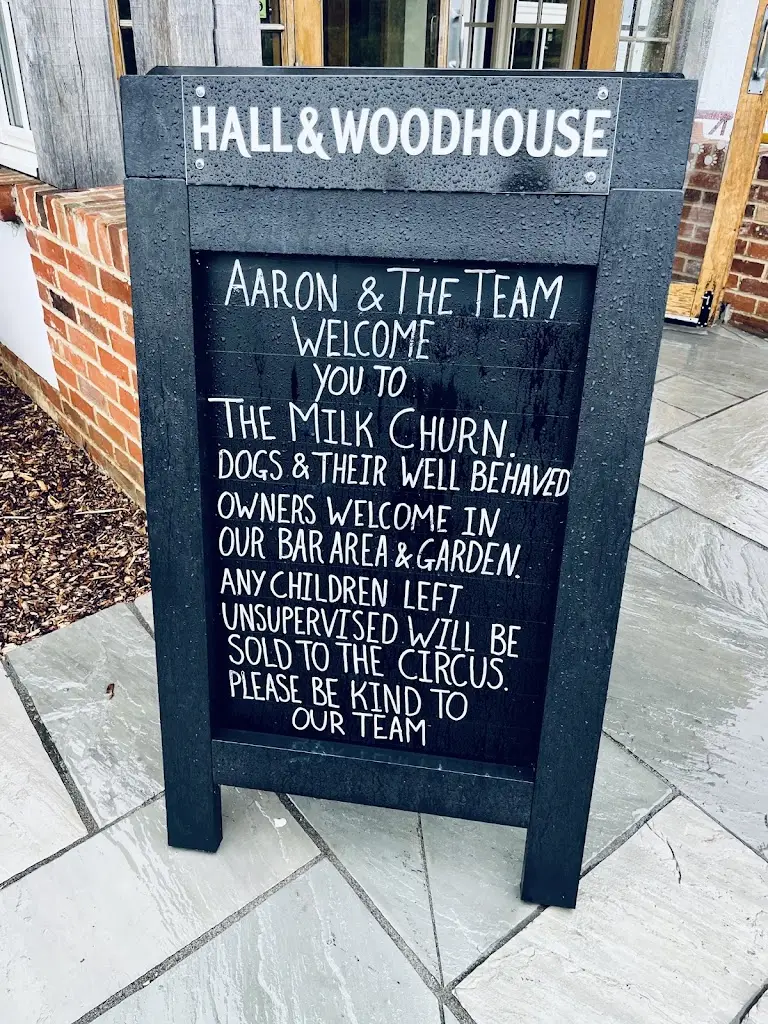 HALL&WOODHOUSE
AARON & THE TEAM
WELCOME
YOU TO
THE MILK CHURN.
DOGS & THEIR WELL BEHAVED
OWNERS WELCOME IN
OUR BAR AREA & GARDEN.
ANY CHILDREN LEFT
UNSUPERVISED WILL BE
SOLD TO THE CIRCUS.
PLEASE BE KIND TO
OUR TEAM